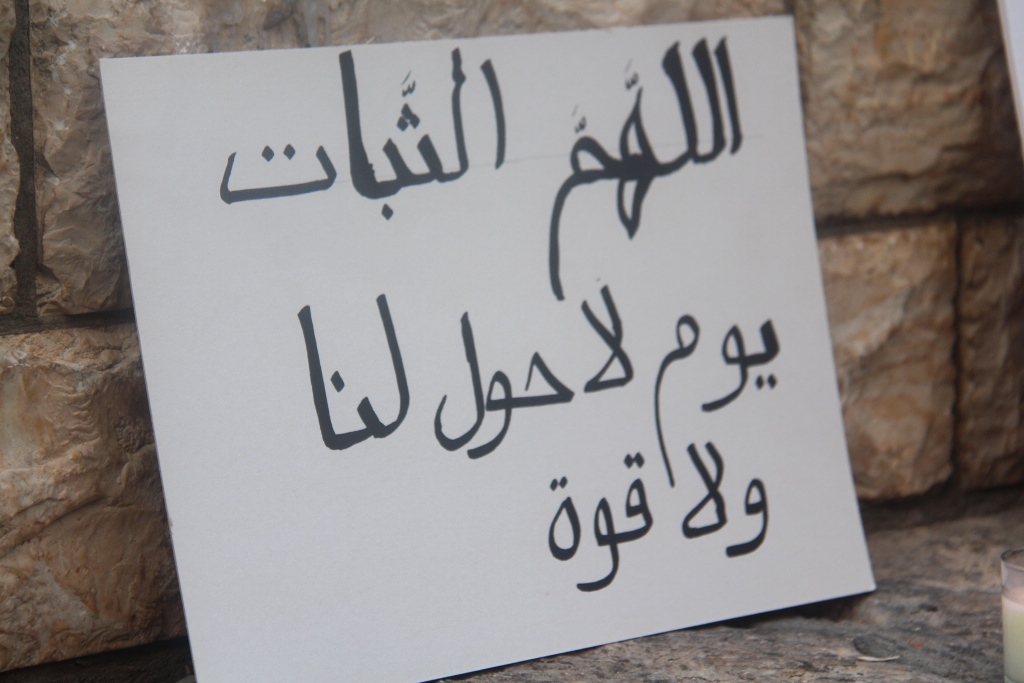 اللهمَّ الثَّبات
يوم لا حول لنا
ولا قوة